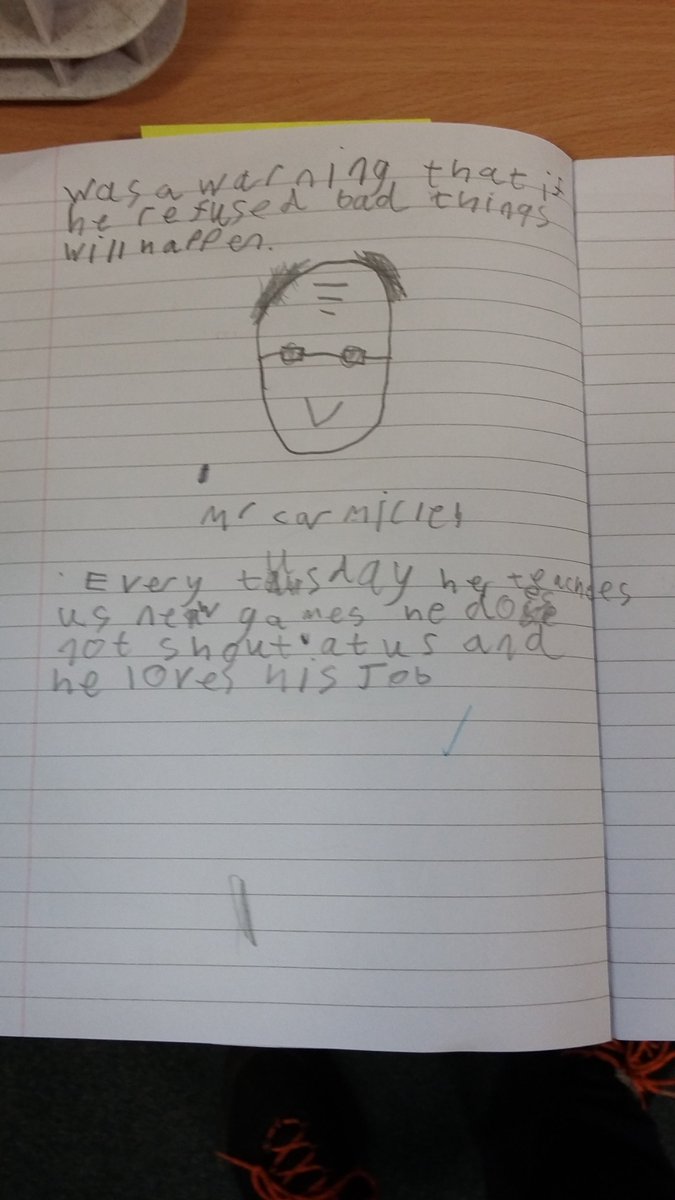 was a warning that if
he refused bad things
will happen.
Mr carmicle
Every tusday he teaches
us new games he dose
not shout at us and
he loves his Job